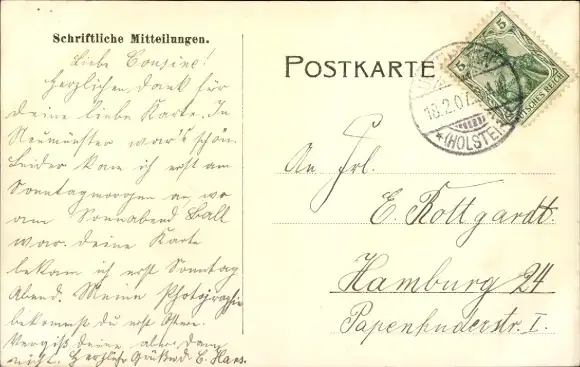 Schriftliche Mitteilungen.
Liebe Cousine!
Herzlichen Dank für
deine liebe Karte. In
Neumünster war's schön.
Leider kam ich erst am
Sonntagmorgen an, wo
am Sonnabend Ball
war. Deine Karte
bekam ich erst Sonntag
Abend. Meine Photographie
bekommst du erst Ostern.
Vergiß deine aber dann
nicht. Herzliche Grüße d. C. Hans.
POSTKARTE
5
18.2.07.
*(HOLSTEI
DEUTSCHES REICH
An Frl.
E. Rottgardt.
Hamburg 24
Papenhuderstr. I.